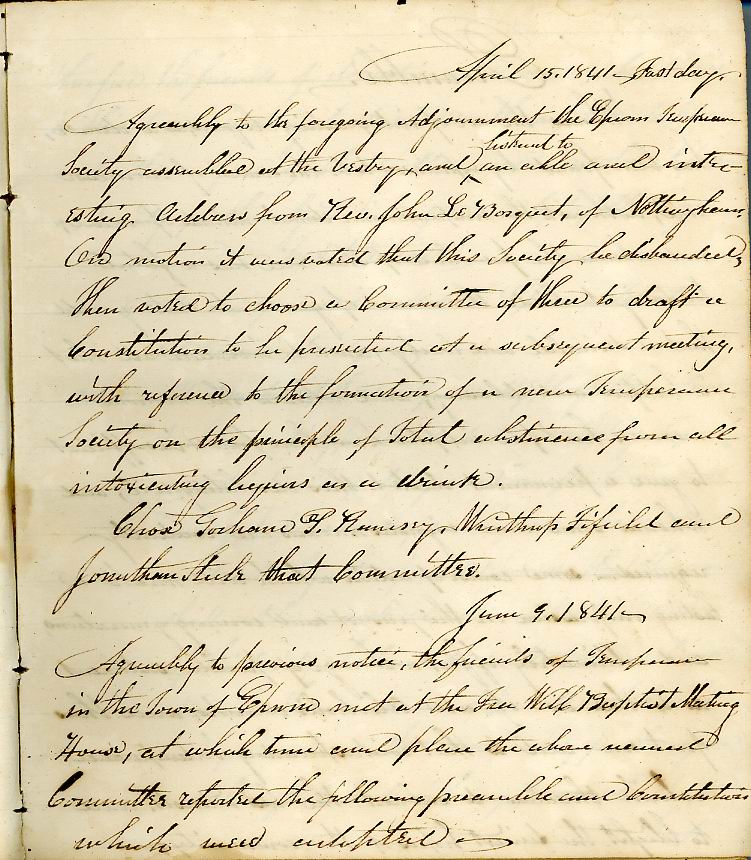 April 15. 1841 – Fast day.
Agreeably to the foregoing Adjournment the Epsom Temperance
listened to
Society assembled at the Vestry, and an able and inter-
esting Address from Rev. John Le Bosquet, of Nottingham.
On motion it was voted that this Society be disbanded,
Then voted to choose a Committee of three to draft a
Constitution to be presented at a subsequent meeting,
with reference to the formation of a new Temperance
Society on the principle of Total abstinence from all
intoxicating liquors as a drink.
Chose Gorham P. Ramsey, Winthrop Fifield and
Jonathan Steele that Committee.
June 9. 1841 –
Agreeably to previous notice, the friends of Temperance
in the Town of Epsom met at the Free Will Baptist Meeting
House, at which time and place the above named
Committee reported the following preamble and Constitution
which were adopted –